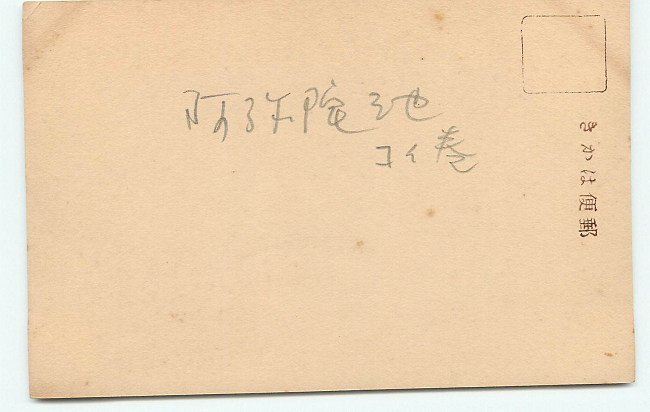 阿弥陀池
コイ巻
郵便はかき